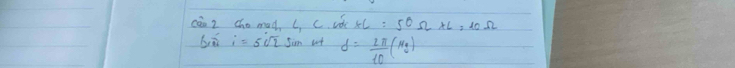 câu 2 Cho mạch L, C với xL = 50 Ω xL = 10 Ω
biết i = 5√2 sin ωt f = 2π/10 (Hz)